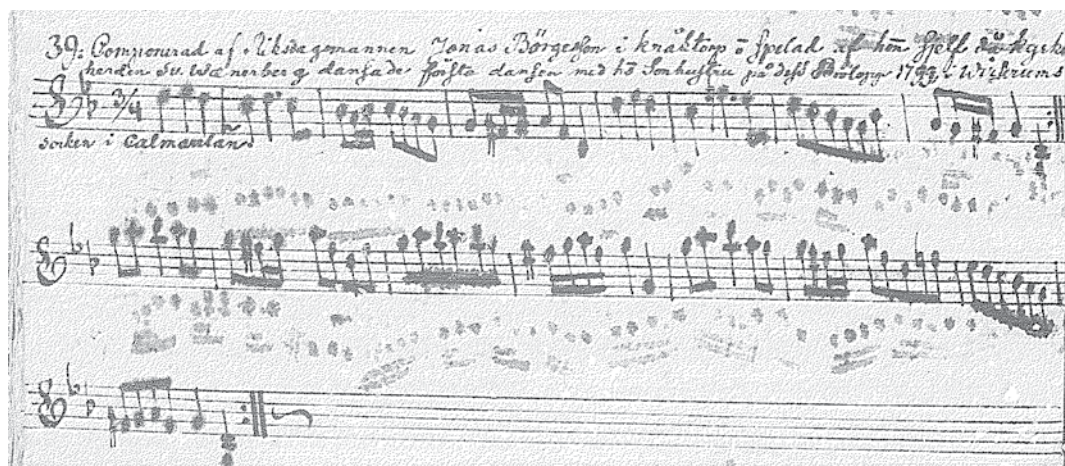 39: Componerad af Riksdagsmannen Jonas Börgesson i Knästorp ō Spelad af hōn Sjelf då Kyrk
herden Sv. Wænerberg dansade första dansen med hs Sonhustru på dess Bröllopp 1793 i Wissrums
socken i Calmarlän
3/4